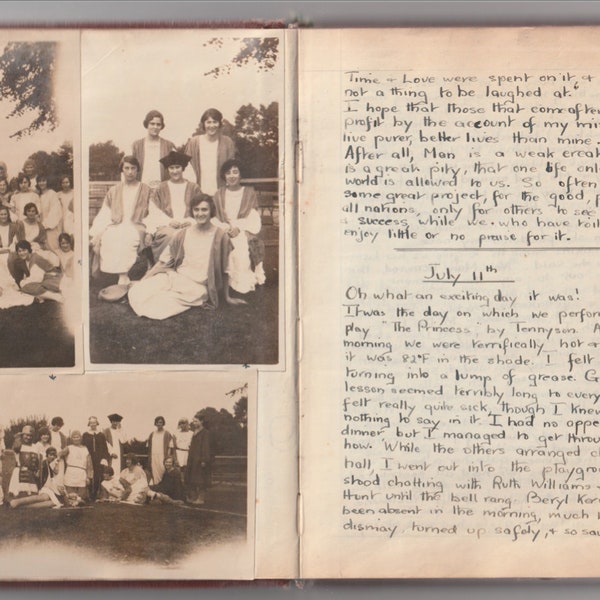 Time & Love were spent on it, &
not a thing to be laughed at."
I hope that those that come after
profit by the account of my
live purer, better lives than mine.
After all, Man is a weak
is a great pity, that one life
world is allowed to us. So often
some great project, for the good,
all nations, only for others to see
a success, while we, who have
enjoy little or no praise for it.
July 11th
Oh what an exciting day it was!
It was the day on which we
play "The Princess" by Tennyson.
morning we were terrifically hot &
it was 82°F in the shade. I felt
turning into a lump of grease.
lesson seemed terribly long to
felt really quite sick, though I
nothing to say in it. I had no
dinner but I managed to get
how. While the others arranged
hall, I went out into the
stood chatting with Ruth Williams
Hunt until the bell rang. Beryl
been absent in the morning, much
dismay, turned up safely, & so